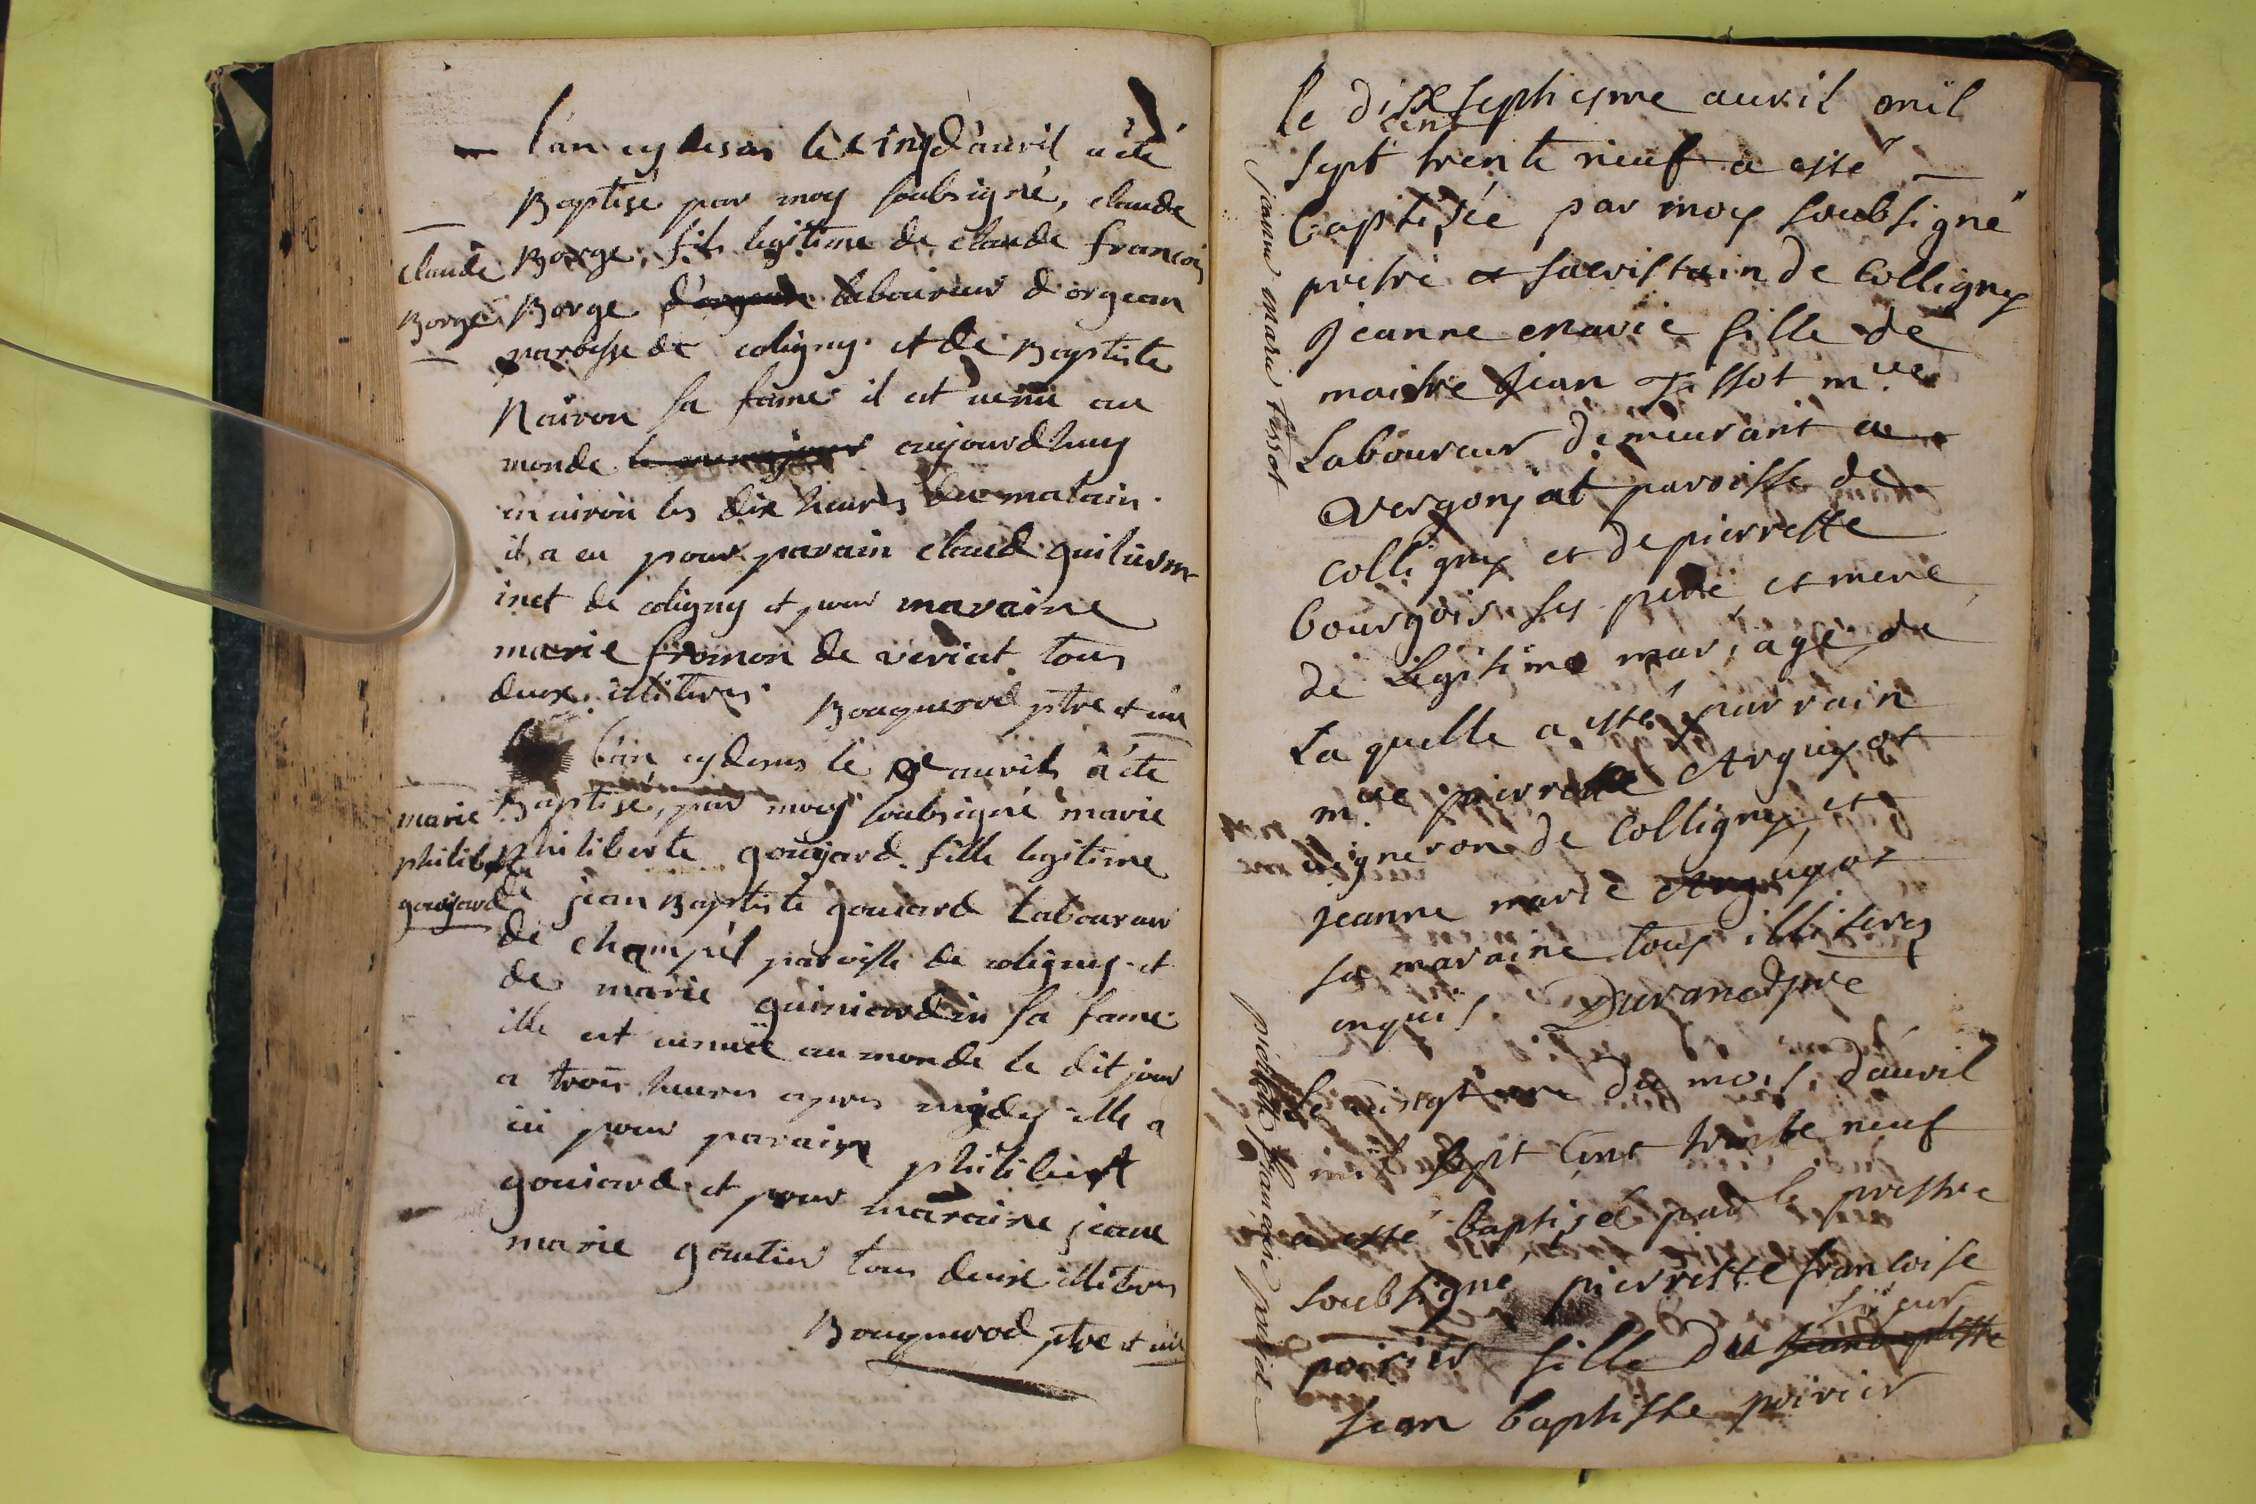 l'an cy desus le cinq d'auril a été
Baptisé par moy soubsigné, claude
claude
Borge, fils legitime de claude francois
Borge
Borge laboureur d'orgean
paroisse de coligny et de Baptiste
Nairon sa fame il est venu au
monde aujourdhuy
enuiron les dix heures du matain
il a eu pour parain claud guilierm
inet de coligny et pour maraine
marie fromon de veriat tous
deux illiteres Bouquerod ptre et uic
l'an cy desus le auril a été
marie
Baptisé, par moy soubsigné marie
philiberte
philiberte goujard fille legitime
goujard
de jean Baptiste gouiard Laboureur
de champel paroisse de coligny et
de marie guiniardin sa fame
elle est uenuë au monde le dit jour
a trois heures apres midy elle a
eu pour parain philibert
gouiard et pour maraine jeane
marie gautier tous deux illiteres
Bouquerod ptre et uic
le dixseptiesme auril mil
cent
sept trente neuf a esté
baptisée par moy soubsigné
prestre et sacristain de Colligny
Jeanne marie fille de
maistre Jean Tissot m.re
Laboureur demeurant a
vergongeat paroisse de
colligny et de pierrette
bourgois ses pere et mere
de Legitime mariage de
La quelle a esté parrain
m.re pierre Arguyot
uigneron de Colligny et
jeanne marie Arguyot
sa maraine tous illiteres
enquis. Durand ptre
jeanne marie tissot
Le uingt du mois d'auril
mil sept cent trente neuf
a esté baptisée par le prestre
soubsigné pierrette françoise
sieur
poirier fille du
Jean baptiste poirier
pierrette françoise poirier